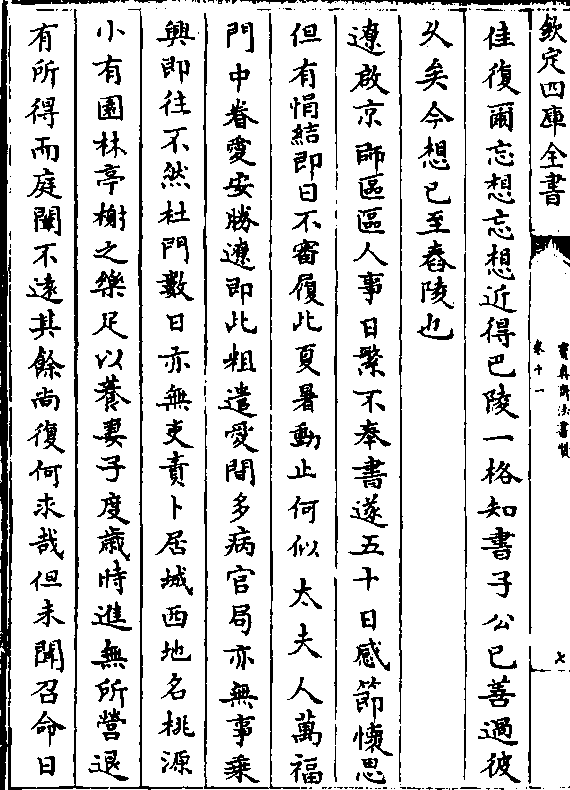 欽定四庫全書
寶真齋法書贊
卷十一
七
佳復爾忘想忘想近得巴陵一格知書子公已善過彼
久矣今想已至舂陵也
遼啟京師區區人事日縈不奉書遂五十日感節懷思
但有悁結即日不審履此夏暑動止何似太夫人萬福
門中眷愛安勝遼即此粗遣愛間多病官局亦無事乗
興即往不然杜門數日亦無吏責卜居城西地名桃源
小有園林亭榭之樂足以養妻子度歲時進無所營退
有所得而庭闈不遠其餘尚復何求哉但未聞召命日